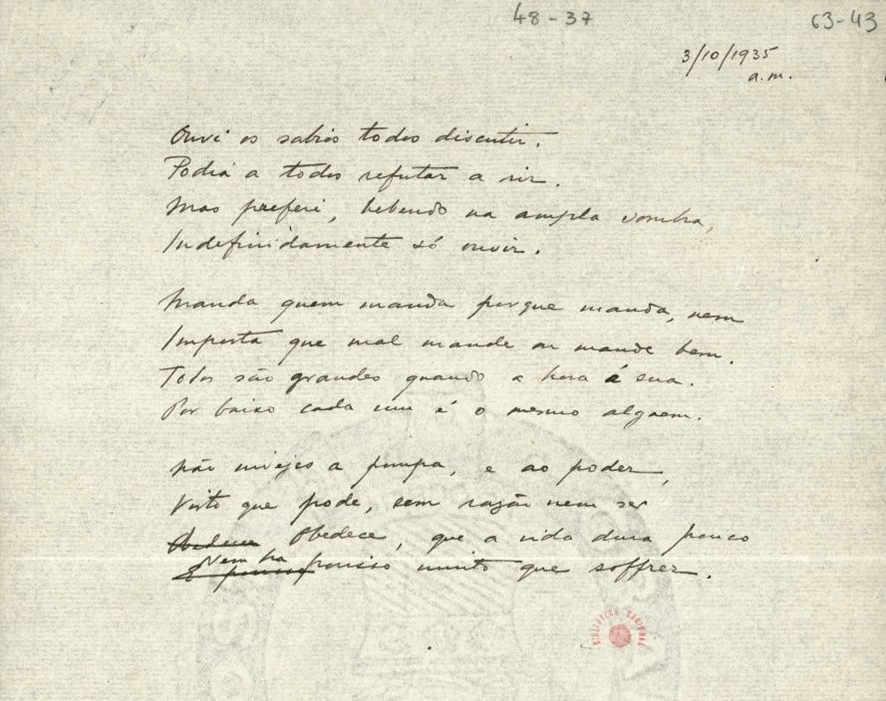 48-37
63-43
3/10/1935
a.m.
Ouvi os sabios todos discutir.
Podia a todos refutar a rir.
Mas preferi, bebendo na ampla sombra,
Indefinidamente só ouvir.
Manda quem manda porque manda, nem
Importa que mal mande ou mande bem.
Todos são grandes quando a hora é sua.
Por baixo cada um é o mesmo alguem.
Não invejo a pompa, e ao poder,
Visto que pode, sem razão nem ser
Obedece Obedece, que a vida dura pouco
Nem ha
E pouco prazer muito que soffrer.
BIBLIOTECA NACIONAL